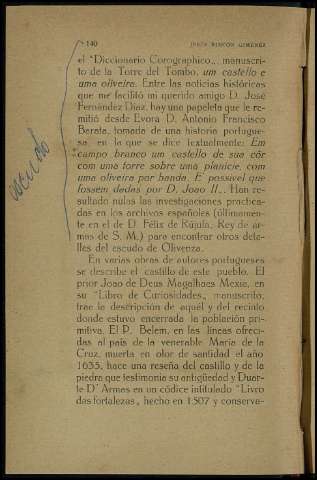 140 JESÚS RINCÓN GIMÉNEZ
el "Diccionario Corographico„, manuscri-
to de la Torre del Tombo, um castello e
uma oliveira. Entre las noticias históricas
que me facilitó mi querido amigo D. José
Fernández Díaz, hay una papeleta que le re-
mitió desde Evora D. Antonio Francisco
Barata, tomada de una historia portugue-
sa, en la que se dice textualmente: Em
campo branco um castello de sua côr
com uma torre sobre uma planicie, com
uma oliveira por banda. E' possivel que
fossem dadas por D. Joao II„. Han re-
sultado nulas las investigaciones practica-
das en los archivos españoles (últimamen-
te en el de D. Félix de Rújula, Rey de ar-
mas de S. M.) para encontrar otros deta-
lles del escudo de Olivenza.
En varias obras de autores portugueses
se describe el castillo de este pueblo. El
prior Joao de Deus Magalhaes Mexia, en
su "Libro de Curiosidades„, manuscrito;
trae la descripción de aquél y del recinto
donde estuvo encerrada la población pri-
mitiva. El P. Belem, en las líneas ofreci-
das al país de la venerable María de la
Cruz, muerta en olor de santidad el año
1635, hace una reseña del castillo y de la
piedra que testimonia su antigüedad y Duar-
te D' Armas en un códice intitulado "Livro
das fortalezas„ hecho en 1507 y conserva-
escudo